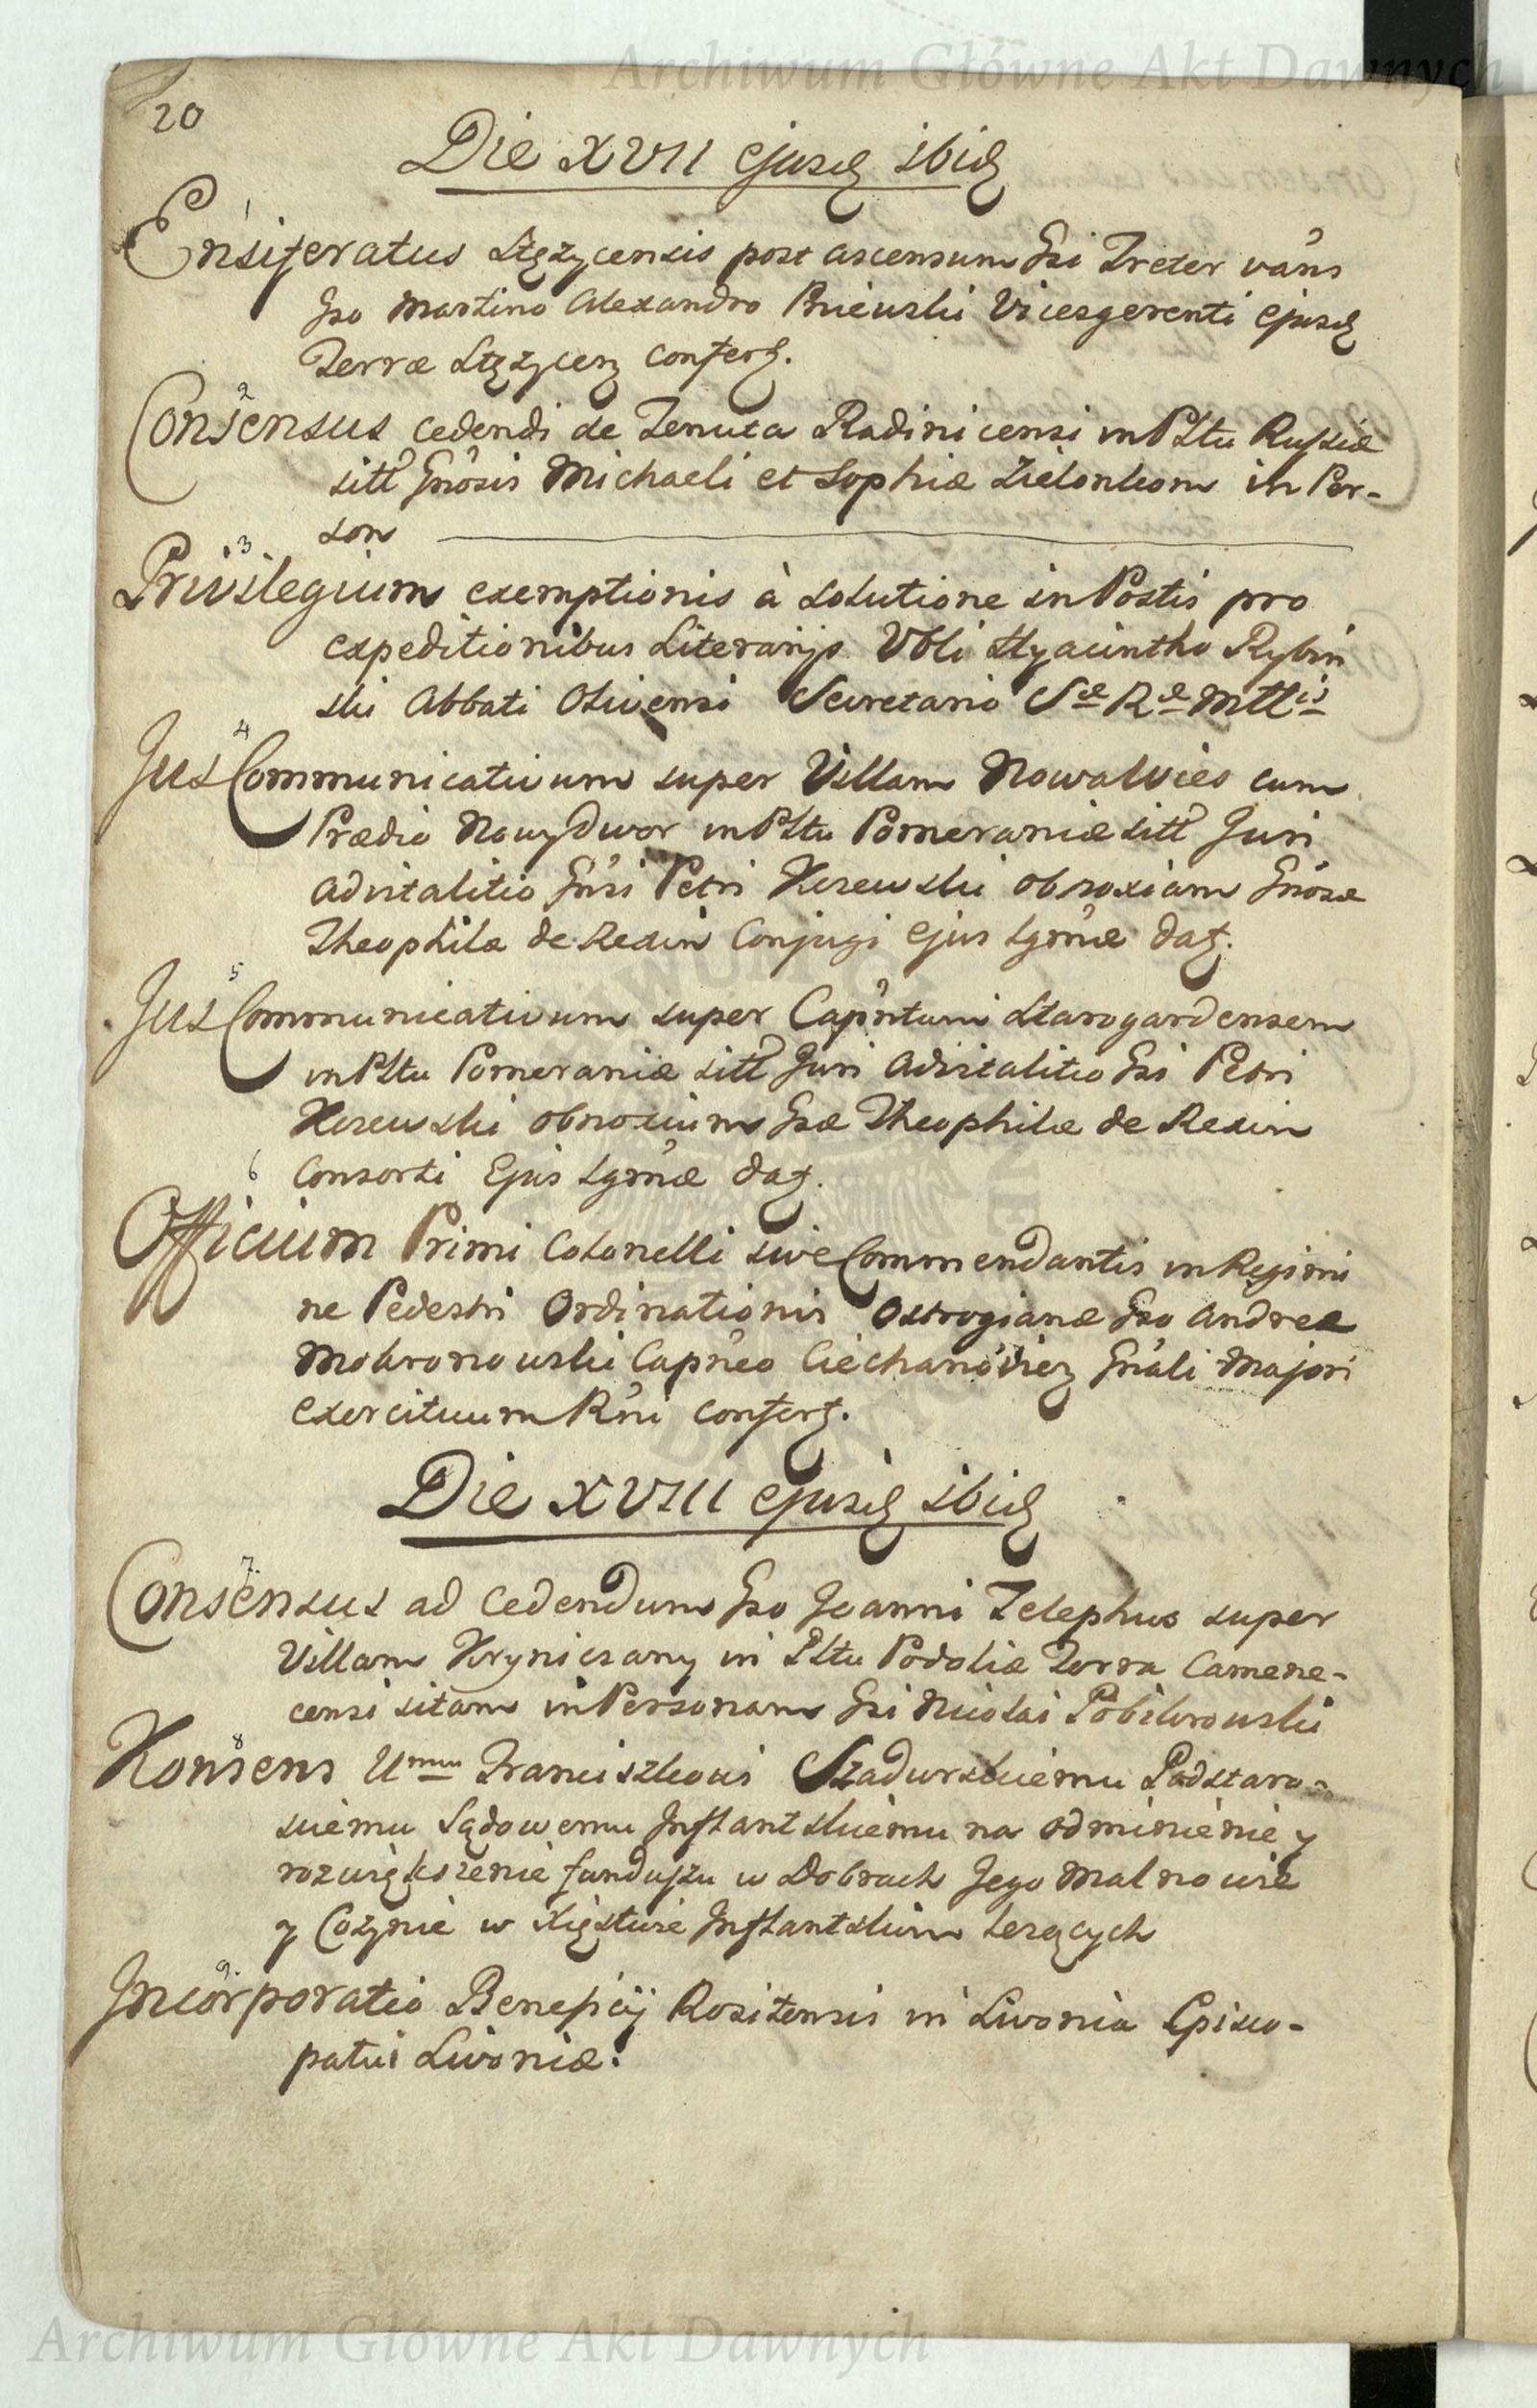 Archiwum Główne Akt Dawnych
20
Die XVII ejusd ibid
1
Ensiferatus Stężycensis post ascensum Gsi Treter vans
Gso Martino Alexandro Pniewski Vicesgerenti ejusd
Terræ Stężycen confert.
2
Consensus cedendi de Tenuta Radinicensi in Pltu Russiæ
sitt Gnosis Michaeli et Sophiæ Zielonkom in Per-
son
3
Privilegium exemptionis à solutione in Postis pro
expeditionibus Literarijs Vbli Hyacintho Rybin
ski Abbati Olivensi Secretario Sæ Ræ Mttis
4
Jus Communicativum super Villam Nowawies cum
Prædio Nowydwor in Pltu Pomeraniæ sitt Juri
advitalitio Gnsi Petri Kczewski obnoxiam Gnosæ
Theophilæ de Rexin Conjugi Ejus Lgmæ dat.
5
Jus Communicativum super Capntum Starogardensem
in Pltu Pomeraniæ sitt Juri Advitalitio Gsi Petri
Kczewski obnoxium Gsæ Theophilæ de Rexin
Consorti Ejus Lgmæ dat.
6
Officium Primi Colonelli sive Commendantis in Regimi
ne Pedestri Ordinationis Ostrogianæ Gso Andreæ
Mokronowski Capneo Ciechanoviez Gnali Majori
exercituum Rni confert.
Die XVIII ejusd ibid
7.
Consensus ad cedendum Gso Joanni Telephus super
Villam Kryniczany in Pltu Podoliæ Terra Camene-
censi sitam in Personam Gsi Nicolai Pobikrowski
8
Konsens Umu Franciszkowi Szadurskiemu Podstaro-
sciemu Sądowemu Inflantskiemu na odmienienie y
rozwiększenie funduszu w Dobrach Jego Malnowie
y Cożynie w Xięstwie Inflantskim lezących
9.
Incorporatio Beneficij Rositensis in Livonia Episco-
patui Livoniæ.
Archiwum Główne Akt Dawnych